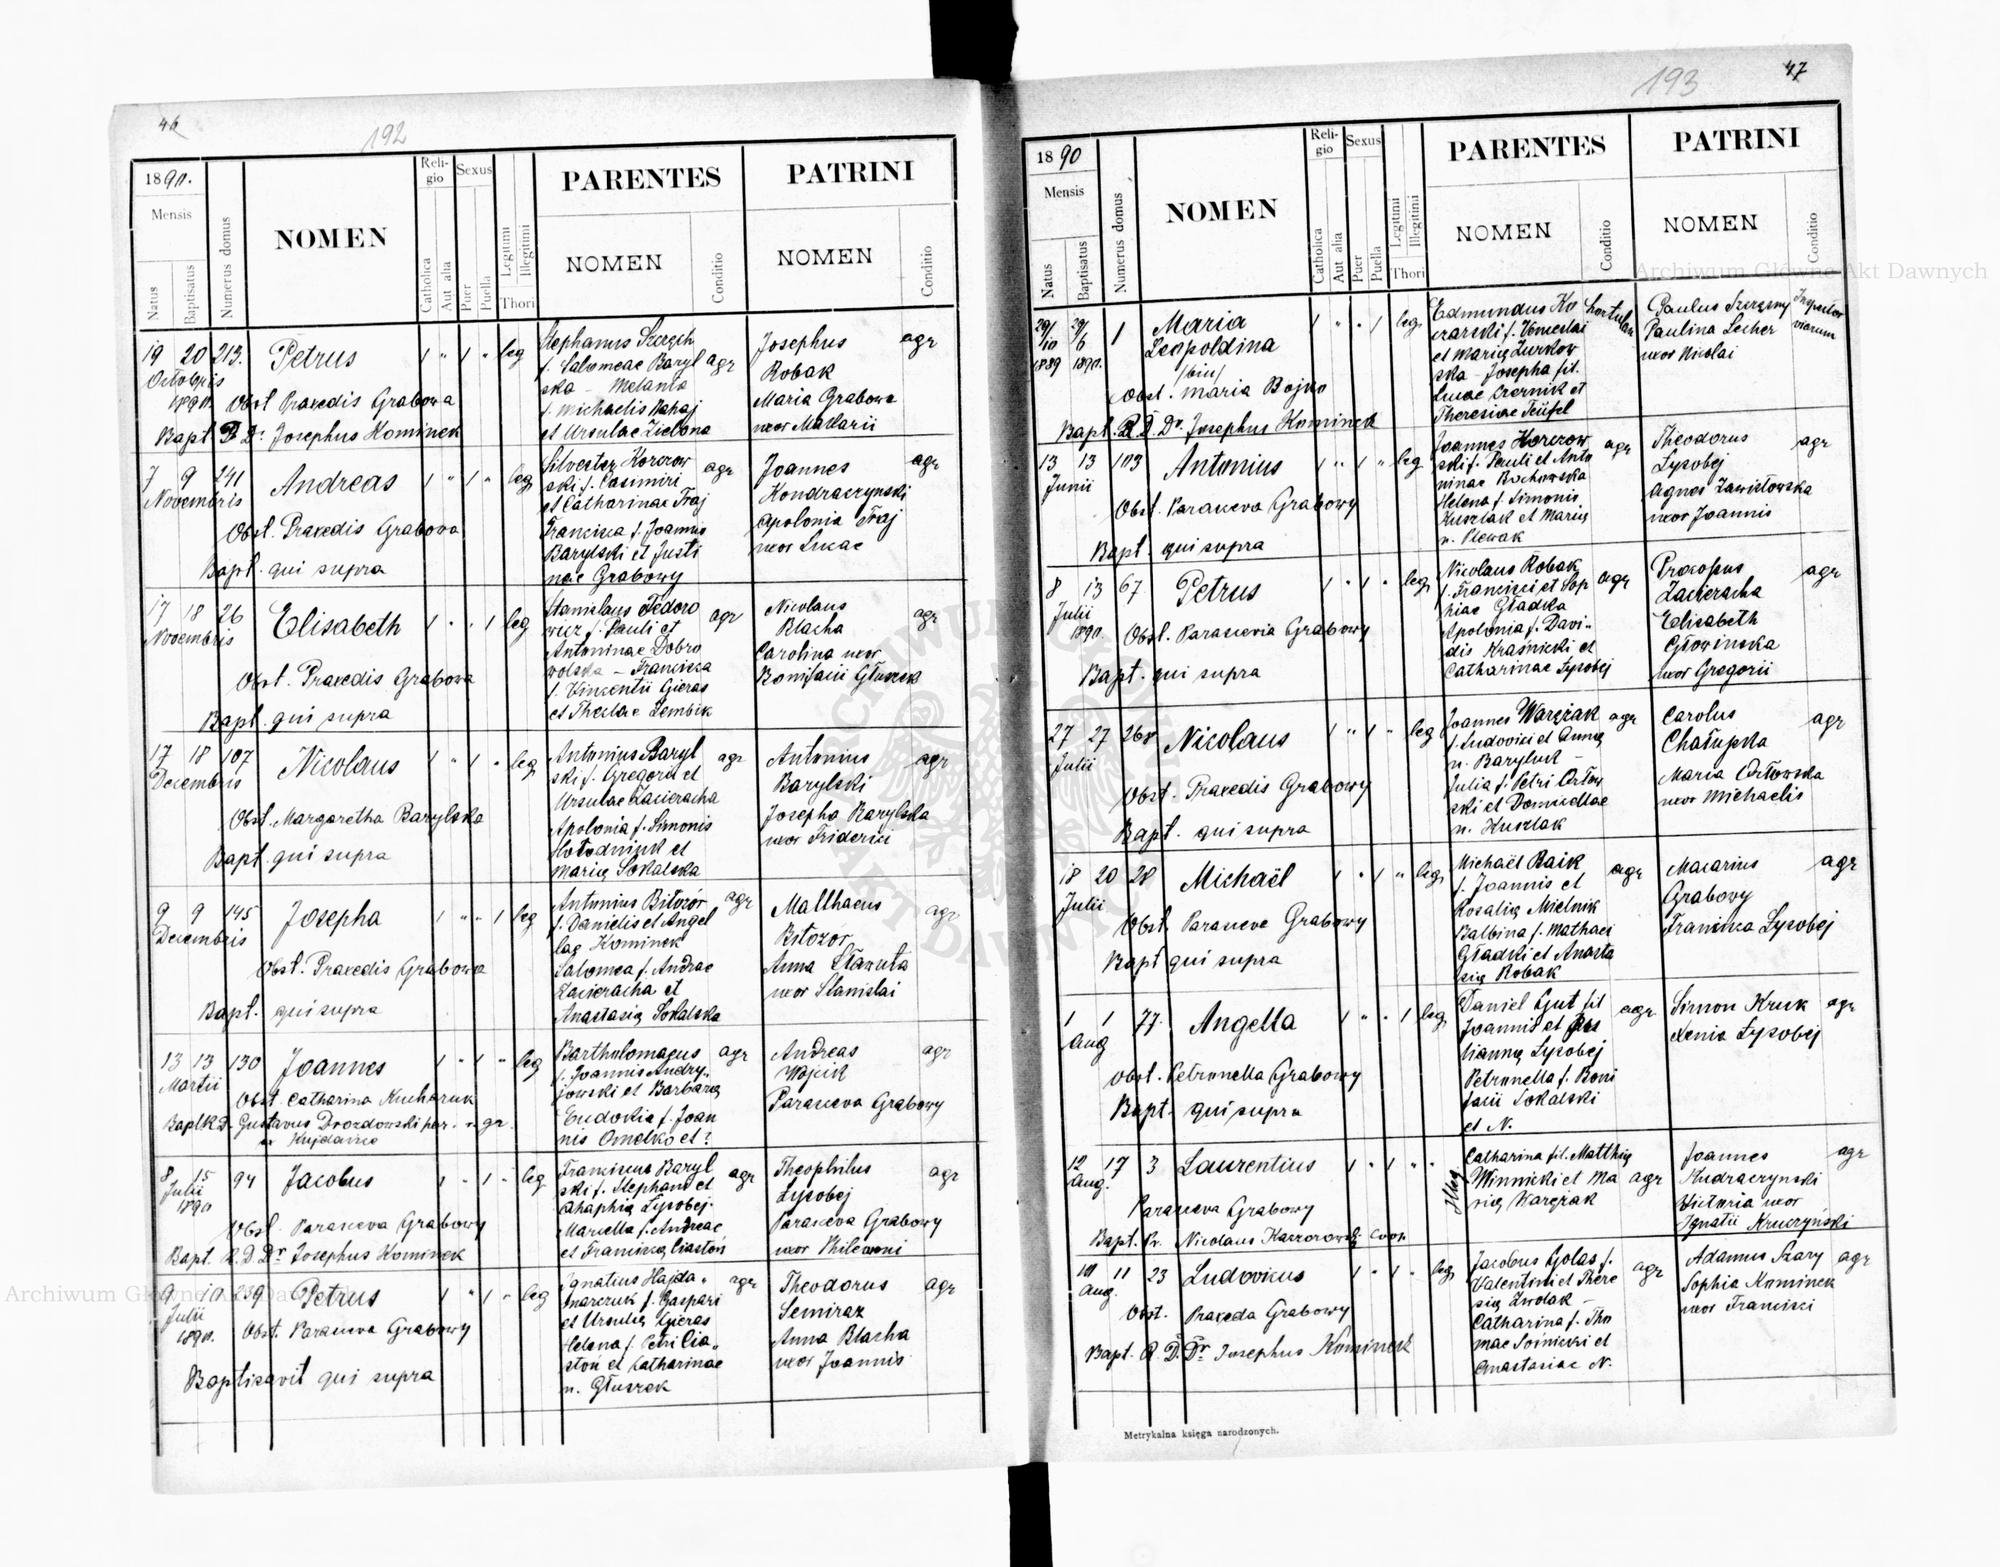 46
192
1890.
Mensis
Natus
Baptisatus
Numerus domus
NOMEN
Religio
Catholica
Aut alia
Sexus
Puer
Puella
Legitimi
Illegitimi
Thori
PARENTES
NOMEN
Conditio
PATRINI
NOMEN
Conditio
19 20 213. Petrus 1 " 1 " leg
Octobris
1890.
Obst Praxedis Grabowa
Bapt. Dr. Josephus Kominek
Stephanus
f. Salomeae Baryl agr
ska – Melania
f. Michaelis
et Ursulae Zielona
Josephus agr
Robak
Maria Grabowa
uxor Makarii
7 9 241 Andreas 1 " 1 " leg
Novembris
Obst. Praxedis Grabowa
Bapt. qui supra
Silvester Korczow agr
ski f. Casimiri
et Catharinae Fraj
Francisca f. Joannis
Barylski et Justi
nae Grabowy
Joannes agr
Kondraczynski
Apolonia Fraj
uxor Lucae
17 18 26 Elisabeth 1 " " 1 leg
Novembris
Obst. Praxedis Grabowa
Bapt. qui supra
Stanislaus Fedoro agr
wicz f. Pauli et
Antoninae Dobro
wolska – Francisca
f. Vincentii Gieras
et Theclae Lembik
Nicolaus agr
Blacha
Carolina uxor
Bonifacii
17 18 107 Nicolaus 1 " 1 " leg
Decembris
Obst. Margaretha Barylska
Bapt. qui supra
Antonius Baryl agr
ski f. Gregorii et
Ursulae Zacieracha
Apolonia f. Simonis
Hołodniuk et
Marię Sokalska
Antonius agr
Barylski
Josepha Barylska
uxor Friderici
9 9 145 Josepha 1 " " 1 leg
Decembris
Obst. Praxedis Grabowa
Bapt. qui supra
Antonius Bitozór agr
f. Danielis et Angel
lae Kominek
Salomea f. Andreae
Zacieracha et
Anastasię Sokalska
Matthaeus agr
Bitozor
Anna
uxor Stanislai
13 13 130 Joannes 1 " 1 " leg
Martii
Obst. Catharina Kucharuk
Gustavus Drozdowski par. r. gr.
Bartholomaeus agr
f. Joannis Andry-
jowski et Barbarę
Eudokia f. Joan
nis Omelko et ?
Andreas agr
Wojcik
Parasceva Grabowy
8 15 94 Jacobus 1 " 1 " leg
Julii
1890
Obst. Parasceva Grabowy
Bapt. R. D. Dr. Josephus Kominek
Franciscus Baryl agr
ski f. Stephani et
Łysobej
Marcella f. Andreae
et Franciscę Ciastoń
Theophilus agr
Łysobej
Parasceva Grabowy
uxor Philemoni
9 10 259 Petrus 1 " 1 " leg
Julii
1890.
Obst. Parasceva Grabowy
Baptisavit qui supra
Ignatius Hajda- agr
marczuk f. Gaspari
et Ursulę Gieras
Helena f. Petri Cia-
stoń et Catharinae
n. Głuszek
Theodorus agr
Semiraz
Anna Blacha
uxor Joannis
193
47
1890
Mensis
Natus
Baptisatus
Numerus domus
NOMEN
Religio
Catholica
Aut alia
Sexus
Puer
Puella
Legitimi
Illegitimi
Thori
PARENTES
NOMEN
Conditio
PATRINI
NOMEN
Conditio
29/10 29/6 1 Maria 1 " " 1 leg
1889 1890. Leopoldina
/bin/
Obst. Maria Bojko
Bapt. R. D. Dr. Josephus Kominek
Edmundus Ko hortulan
czarski f.
et Marię Zurkow
ska – Josepha fil.
Lucae Czernik et
Theresiae Teüfel
Paulus Szczęsny Inspector viarum
Paulina Lecher
uxor Nicolai
13 13 103 Antonius 1 " 1 " leg
Junii
Obst. Parasceva Grabowy
Bapt. qui supra
Joannes Korczow agr
ski f. Pauli et Anto
ninae Bochowska
Helena f. Simonis
Kuszlak et Marię
n. Plewak
Theodorus agr
Łysobej
Agnes Zawistowska
uxor Joannis
8 13 67 Petrus 1 " 1 " leg
Julii
1890
Obst. Parascevia Grabowy
Bapt. qui supra
Nicolaus Robak agr
f. Francisci et Sop
hiae Gładka
Apolonia f. Davi-
dis Kraśnicki et
Catharinae Łysobej
Procopus agr
Zacieracha
Elisabeth
Głowinska
uxor Gregorii
27 27 268 Nicolaus 1 " 1 " leg
Julii
Obst. Praxedis Grabowy
Bapt. qui supra
Joannes Waręzak agr
f. Ludovici et Annę
n. Baryluk –
Julia f. Petri Orłow
ski et Domicellae
n. Kuszlak
Carolus agr
Chałupka
Maria Orłowska
uxor Michaelis
18 20 28 Michaël 1 " 1 " leg
Julii
Obst. Parasceve Grabowy
Bapt qui supra
Michaël Baik agr
f. Joannis et
Rosalię Mielnik
Balbina f. Mathaei
Gładki et Anasta
się Robak
Macarius agr
Grabowy
Francisca Łysobej
1 1 77. Angella 1 " " 1 leg
Aug
Obst. Petronella Grabowy
Bapt. qui supra
Daniel Gut fil agr
Joannis et
liannę Łysobej
Petronella f. Boni
facii Sokalski
et N.
Simon Kruk agr
Xenia Łysobej
12 17 3 Laurentius 1 " 1 " "
Aug.
Parasceva Grabowy
Bapt. Nicolaus coop
Illeg.
Catharina fil. Matthię
Winnicki et Ma agr
rię Waręzak
Joannes agr
Kudraczynski
Victoria uxor
Ignatii Kruczyński
10 11 23 Ludovicus 1 " 1 " leg
Aug.
Obst. Praxeda Grabowy
Bapt. R. D. Dr. Josephus Kominek
Jacobus Golas f. agr
Valentini et There
się Zwolak –
Catharina f. Tho
mae Sośnicki et
Anastasiae N.
Adamus Szary agr
Sophia Kominek
uxor Francisci
Metrykalna księga narodzonych.
Archiwum Główne Akt Dawnych
Archiwum Główne Akt Dawnych
ARCHIWUM GŁÓWNE AKT DAWNYCH